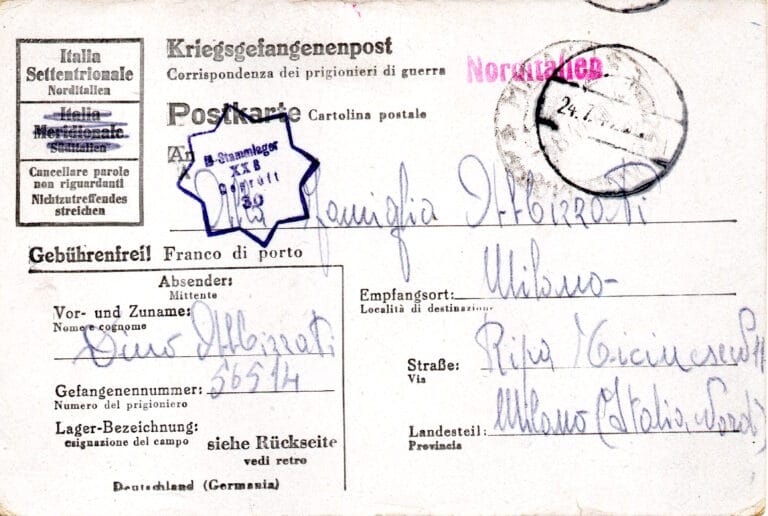 Italia
Settentrionale
Norditalien
Italia
Meridionale
Süditalien
Cancellare parole
non riguardanti
Nichtzutreffendes
streichen
Kriegsgefangenenpost
Corrispondenza dei prigionieri di guerra
Norditalien
Postkarte Cartolina postale
24.7.
An
M-Stammlager
XX B
Geprüft
30
Alla Famiglia Abbizzati
Gebührenfrei! Franco di porto
Absender:
Mittente
Vor- und Zuname:
Nome e cognome
Dino Abbizzati
Gefangenennummer: 56514
Numero del prigioniero
Lager-Bezeichnung:
esignazione del campo
siehe Rückseite
vedi retro
Deutschland (Germania)
Empfangsort: Milano
Località di destinazione
Straße: Ripa Ticinese
Via
Landesteil: Milano (Italia Nord)
Provincia